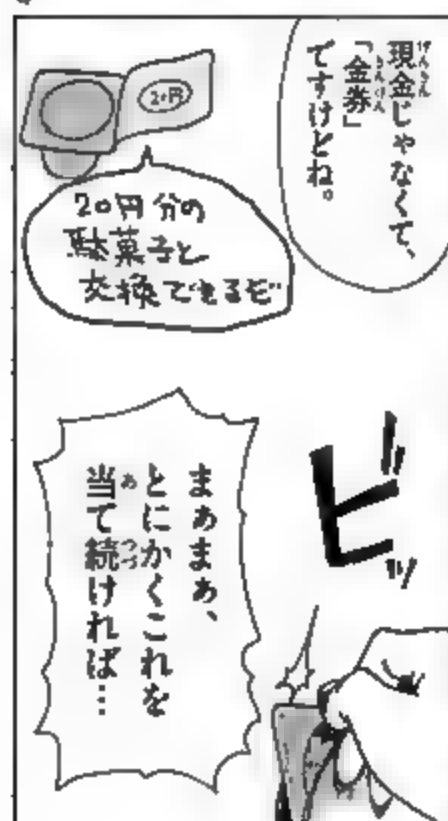 現金じゃなくて、
「金券」
ですけどね。
20円
20円分の
駄菓子と
交換できるぞ
ビッ
まぁまぁ、
とにかくこれを
当て続ければ…